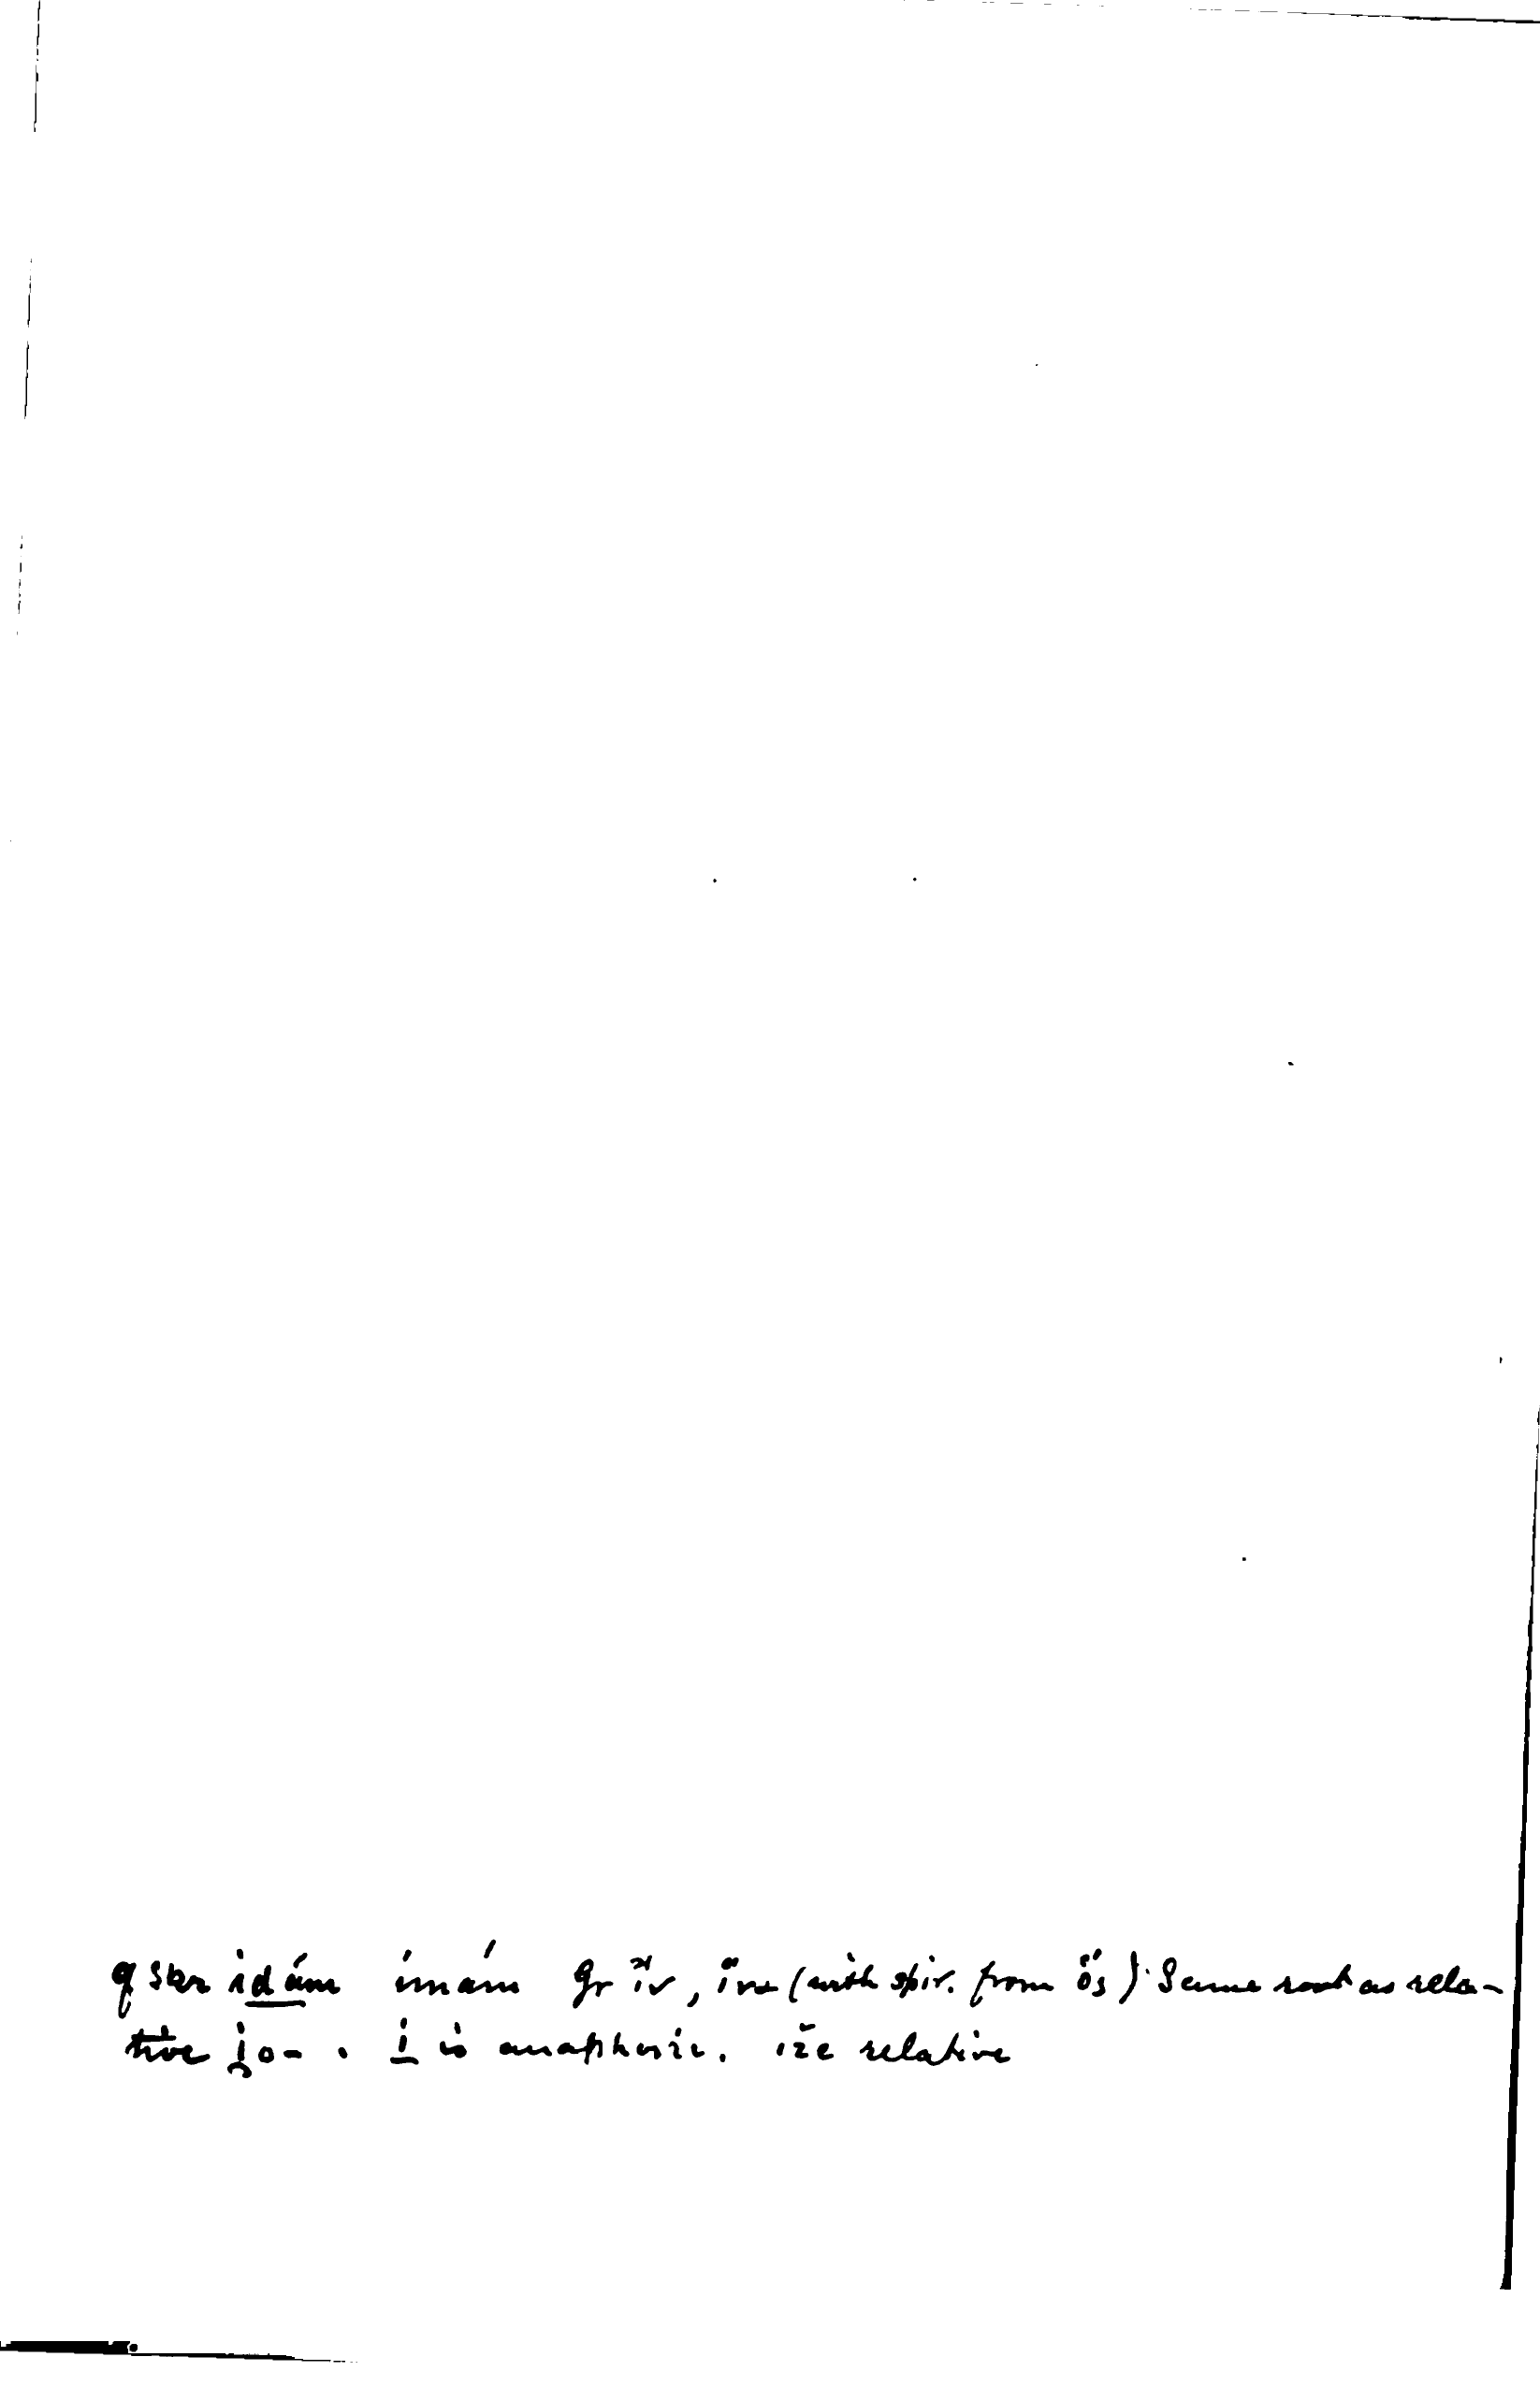 q skr idám imám Gr ἵν, ἵνα (with spir. from ὅς). Same root as rela-
tive i̯o-. i is anaphoric. iže relative